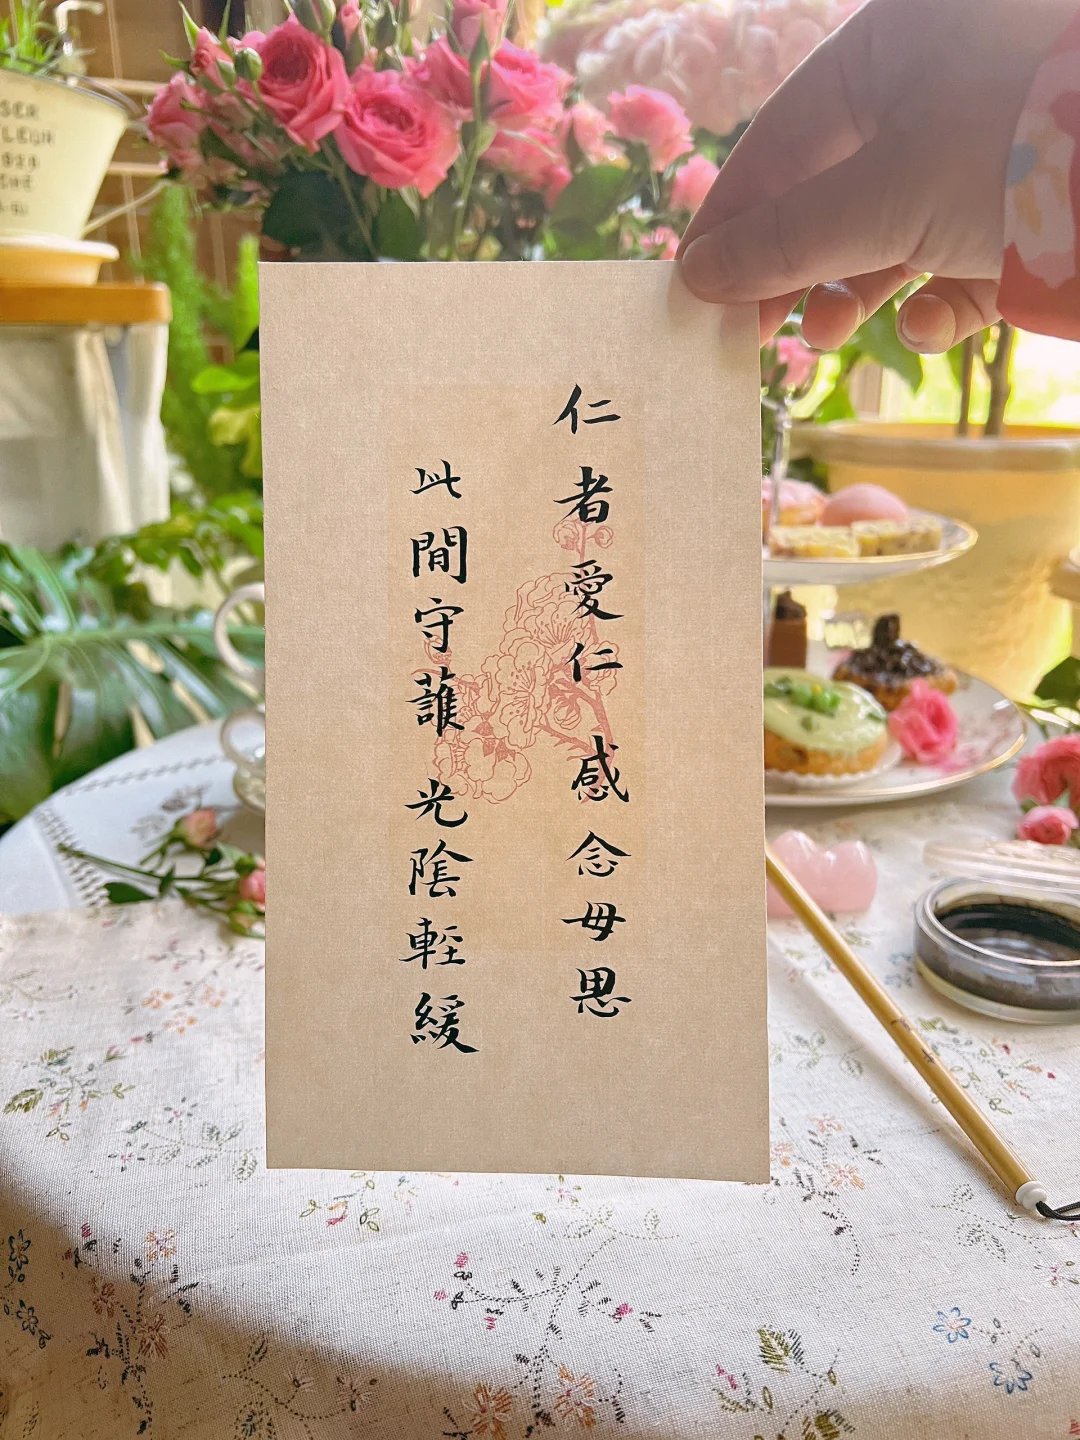 仁者愛仁 感念母恩
此間守護 光陰輕緩